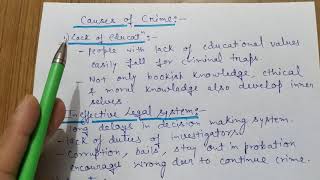 Causes of Crime:-
i) Lack of educatⁿ:-
- People with lack of educational values
easily fall for criminal traps.
- Not only bookish knowledge, ethical
& moral knowledge also develop inner
selves.
Ineffective Legal system:-
long delays in decision making system.
- lack of duties of investigators.
- Corruption, bails, stay out in probation
encourage wrong due to continue crime.